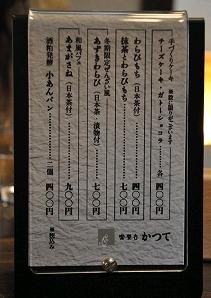 手づくりケーキ ※数に限りがございます
チーズケーキ・ガトーショコラ 各 四〇〇円
わらびもち 四〇〇円
抹茶とわらびもち (日本茶付) 七〇〇円
冬期限定ぜんざい風
あずきわらび (日本茶・漬物付) 七〇〇円
和風パフェ
あまがさね (日本茶付) 九〇〇円
酒粕発酵
小あんパン 二個 四〇〇円
※税込み
かつて